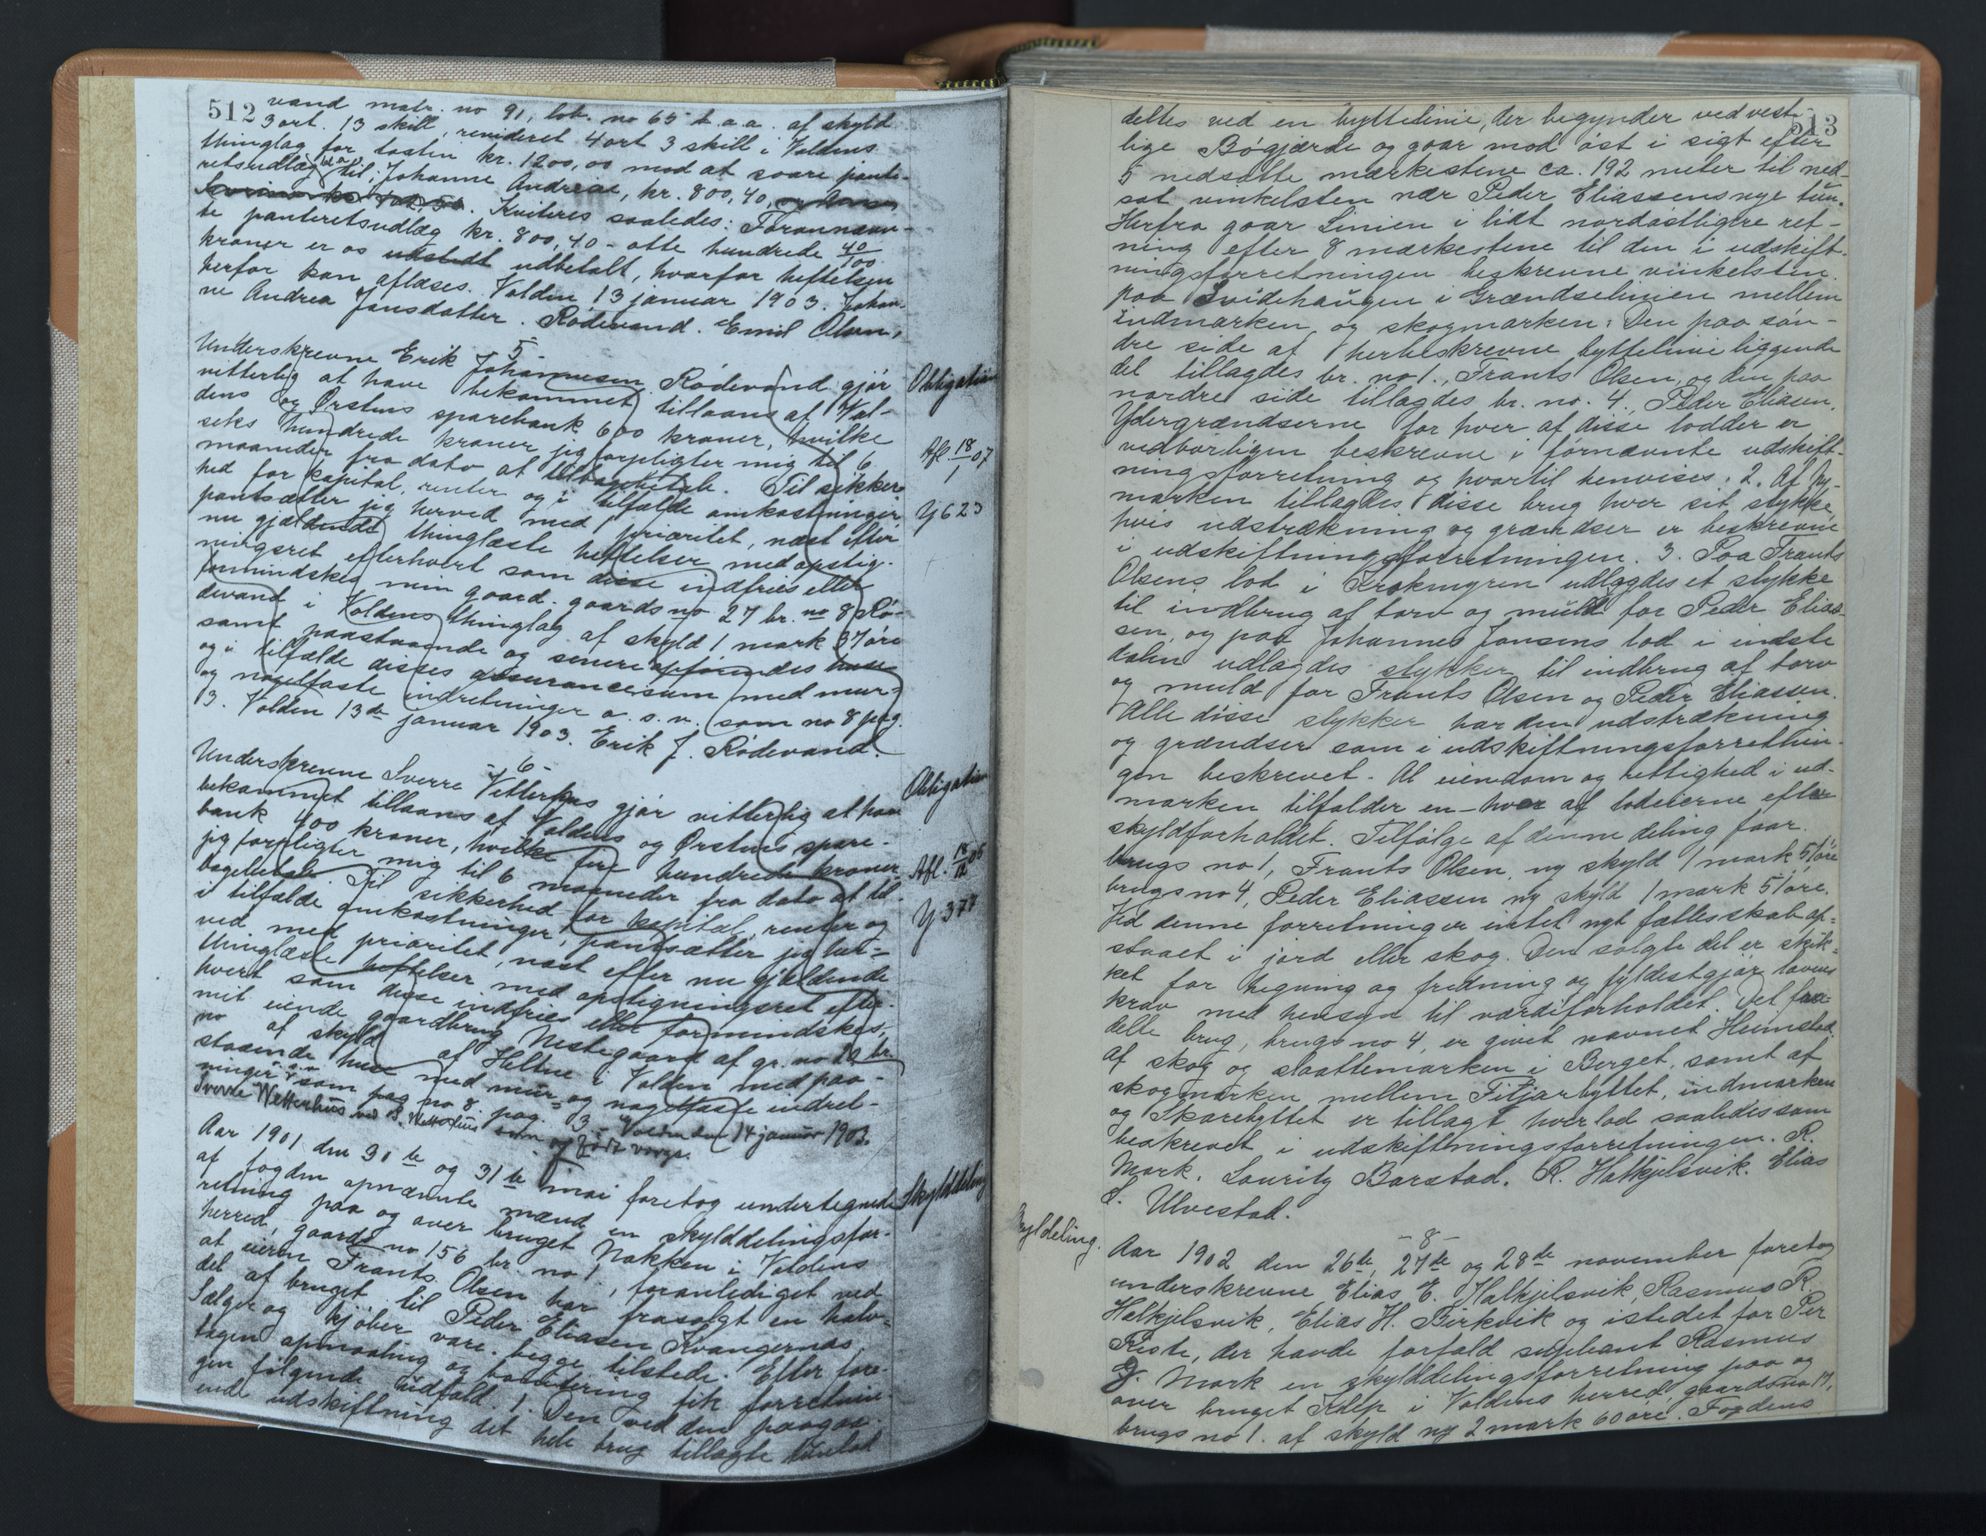 512
vand matr. no 91, lob. no 65 b. a. a. af skyld
3 ort. 13 skill, revideret 4 ort 3 skill i Voldens
thinglag for tosten kr. 1200,00 mod at svare pante-
retsudlæg til: Johanne Andreas, kr. 800,40,
Kviteres saaledes: Forannævn-
te panteretsudlæg kr. 800,40 - otte hundrede 40/100
kroner er os udstedt udbetalt, hvorfor heftelsen
herfor kan aflæses. Volden 13 januar 1903. Johan-
ne Andrea Jonsdatter. Rødevand. Emil Olsen,
5
Underskrevne Erik Johannesen Rødevand gjør
vitterlig at have bekommet tillaans af Vol-
dens og Ørstens sparebank 600 kroner, hvilke
seks hundrede kroner jeg forpligter mig til 6
maaneder fra dato at tilbagebetale. Til sikker-
hed for kapital, renter og i tilfælde omkostninger
pantsætter jeg herved med prioritet, næst efter
nu gjældende thinglæste heftelser med opstig-
ningsret efterhvert som disse indfries eller
formindskes min gaard gaards no 27 br. no 8 Rø-
devand i Voldens thinglag af skyld 1 mark 37 øre
samt paastaaende og senere opførendes huse
og i tilfælde disses assurancesum med mur-
og nagelfaste indretninger o. s. v. som no 8 pag.
3. Volden 13de januar 1903. Erik J. Rødevand.
Obligation
Afl. 18/1 07
Y 623
- 6 -
Underskrevne Sverre Vetterhus gjør vitterlig at have
bekommet tillaans af Voldens og Ørstens spare-
bank 400 kroner, hvilke fire hundrede kroner
jeg forpligter mig til 6 maaneder fra dato at til-
bagebetale. Til sikkerhed for kapital, renter og
i tilfælde omkostninger, pantsætter jeg her-
ved med prioritet, næst efter nu gjældende
thinglæste heftelser med opstigningsret efter-
hvert som disse indfries eller formindskes,
mit eiende gaardbrug Nestegaard af gr. no 19 br.
no af skyld af Heltne i Volden med paa-
staaende huse med mur- og nagelfaste indret-
ninger o.s.v. som pag no 8 pag. 3. Volden den 14 januar 1903.
Sverre Wetterhus ved S. Wetterhus som født verge.
Obligation
Afl. 06
Y 377
Aar 1901 den 30te og 31te mai foretog undertegnede
af fogden opnævnte mænd en skylddelingsfor-
retning paa og over bruget Nakken i Voldens
herred, gaards no 156 br. no 1, foranlediget ved
at eieren Frants Olsen har frasolgt en halv-
del af bruget til Peder Eliasen Kvangernæs.
Sælger og kjøber vare begge tilstede. Efter fore-
tagen opmaaling og bonitering fik forretnin-
gen følgende udfald. 1. Den ved den paagaa-
ende udskiftning det hele brug tillagte
Skylddeling
513
deltes ved en byttelinie, der begynder ved vest-
lige Bøgjærde og gaar mod øst i sigt efter
5 nedsatte mærkestene ca. 192 meter til ned-
sat vinkelsten nær Peder Eliassens nye tun.
Herfra gaar Linien i lidt nordøstligere ret-
ning efter 8 mærkestene til den i udskift-
ningsforretningen beskrevne vinkelsten
paa Svidehaugen i Grændselinien mellem
indmarken og skogmarken: Den paa søn-
dre side af herbeskrevne byttelinie liggende
del tillagdes br. no 1., Frants Olsen, og den paa
nordre side tillagdes br. no. 4, Peder Eliasen.
Ydergrændserne for hver af disse lodder er
vedbørligen beskrevne i førnævnte udskift-
ningsforretning og hvortil henvises: 2. Af Ny-
marken tillagdes disse brug hver sit stykke,
hvis udstrækning og grændser er beskrevne
i udskiftningsforretningen. 3. Paa Frants
Olsens lod i Krokmyren udlagdes et stykke
til indbrug af torv og muld for Peder Elias-
sen, og paa Johannes Jonsens lod i indste
dalen udlagdes stykker til indbrug af torv
og muld for Frants Olsen og Peder Eliassen.
Alle disse stykker har den udstrækning
og grændser som i udskiftningsforretnin-
gen beskrevet. Al eiendom og rettighed i ud-
marken tilfalder en-hver af lodeierne efter
skyldforholdet. Tilfølge af denne deling faar
brugs no 1, Frants Olsen, ny skyld 1 mark 51 øre
brugs no 4, Peder Eliassen ny skyld 1 mark 51 øre.
Ved denne forretning er intet nyt fællesskab op-
staaet i jord eller skog. Den solgte del er skik-
ket for hegning og fredning og fyldestgjør lovens
krav med hensyn til værdiforholdet. Det fra-
delte brug, brugs no 4, er givet navnet Heimstad.
Af skog og slaattemarken i Berget, samt af
skogmarken mellem Fitjarbyttet, indmarken
og Skarebyttet er tillagt hver lod saaledes som
beskrevet i udskiftningsforretningen. R.
Mork. Lauritz Barstad. R. Halkjelsvik. Elias
L. Ulvestad.
- 8 -
Skyldeling.
Aar 1902 den 26de, 27de og 28de november foretog
underskrevne Elias E. Halkjelsvik, Rasmus R.
Halkjelsvik, Elias H. Birkvik og istedet for Per
Riste, der havde forfald suppleant Rasmus
J. Mork en skylddelingsforretning paa og
over bruget Kilsp i Voldens herred gaardsno 17,
brugs no 1. af skyld ny 2 mark 60 øre. Fogdens